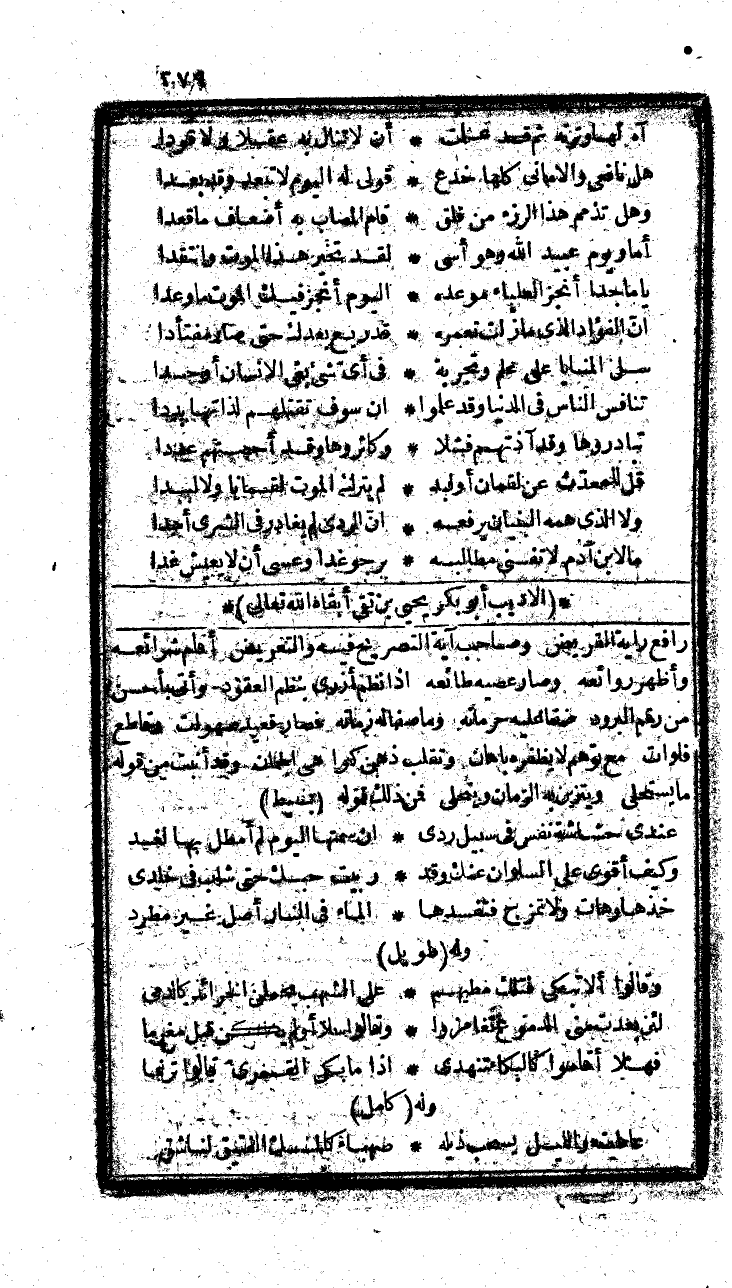 ٢٧٩
آه لها وترته ثم قد علت * أن لا تنال به عقلا ولا قودا
هل نافعي والاماني كلها خدع * قولي له اليوم لا تبعد وقد بعدا
وهل تذمم هذا الرزء من قلق * قام المصاب به أضعاف ما قعدا
أما ويوم عبيد الله وهو أسى * لقد تخير هذا الموت وانتقدا
يا ماجدا أنجز العلياء موعده * اليوم أنجز فيك الموت ما وعدا
ان الفؤاد الذي مازلت تعمره * قد ريع بعدك حتى صار مفتأدا
سلى المنايا على علم وتجربة * في أي شئ بقي الانسان أو جدا
تنافس الناس في الدنيا وقد علموا * ان سوف تقتلهم لذاتها بددا
تبادروها وقد آذتهم فشلا * وكاثروها وقد أحصتهم عددا
قل للمحدث عن لقمان أو لبد * لم يترك الموت لقمانا ولا لبدا
ولا الذي همه البنيان يرفعه * ان الردى لم يغادر في الشرى أحدا
مالابن آدم لا تفنى مطالبه * يرجو غدا وعسى أن لا يعيش غدا
*(الاديب أبو بكر يحيى بن تقي أبقاه الله تعالى)*
رافع راية القريض وصاحب آية التصريح فيه والتعريض أقام شرائعه
وأظهر روائعه وصار عصيه طائعه اذا نظم أزرى بنظم العقود وأتى بأحسن
من رقم البرود ضفا عليه حرمانه وما صفا له زمانه فصار قعيد صهوات وقاطع
فلوات مع توهم لا يظفره بأمان وتقلب ذهن كوا هي الجمان وقد أثبت من قوله
ما يستحلى ويتزين به الزمان ويتحلى فمن ذلك قوله (بسيط)
عندي حشاشة نفس في سبيل ردى * ان سمتها اليوم لم أمطل بها لغد
وكيف أقوى على السلوان عنك وقد * ربيت حبك حتى شاب في خلدي
خذها وهات ولا تمزج فتفسدها * الماء في النار أصل غير مطرد
وله (طويل)
وقالوا ألا تبكي فتلك مطيهم * على الشهب تحملن الخرائد كالدمى
لئن بعدت مني الدموع تغامزوا * وقالوا سلا أو لم يكن قبل مغرما
فهلا أقاموا كالبكا تنهدي * اذا ما بكى القمري قالوا ترنما
وله (كامل)
عاطيته والليل يسحب ذيله * صهباء كالمسك الفتيق لناشق